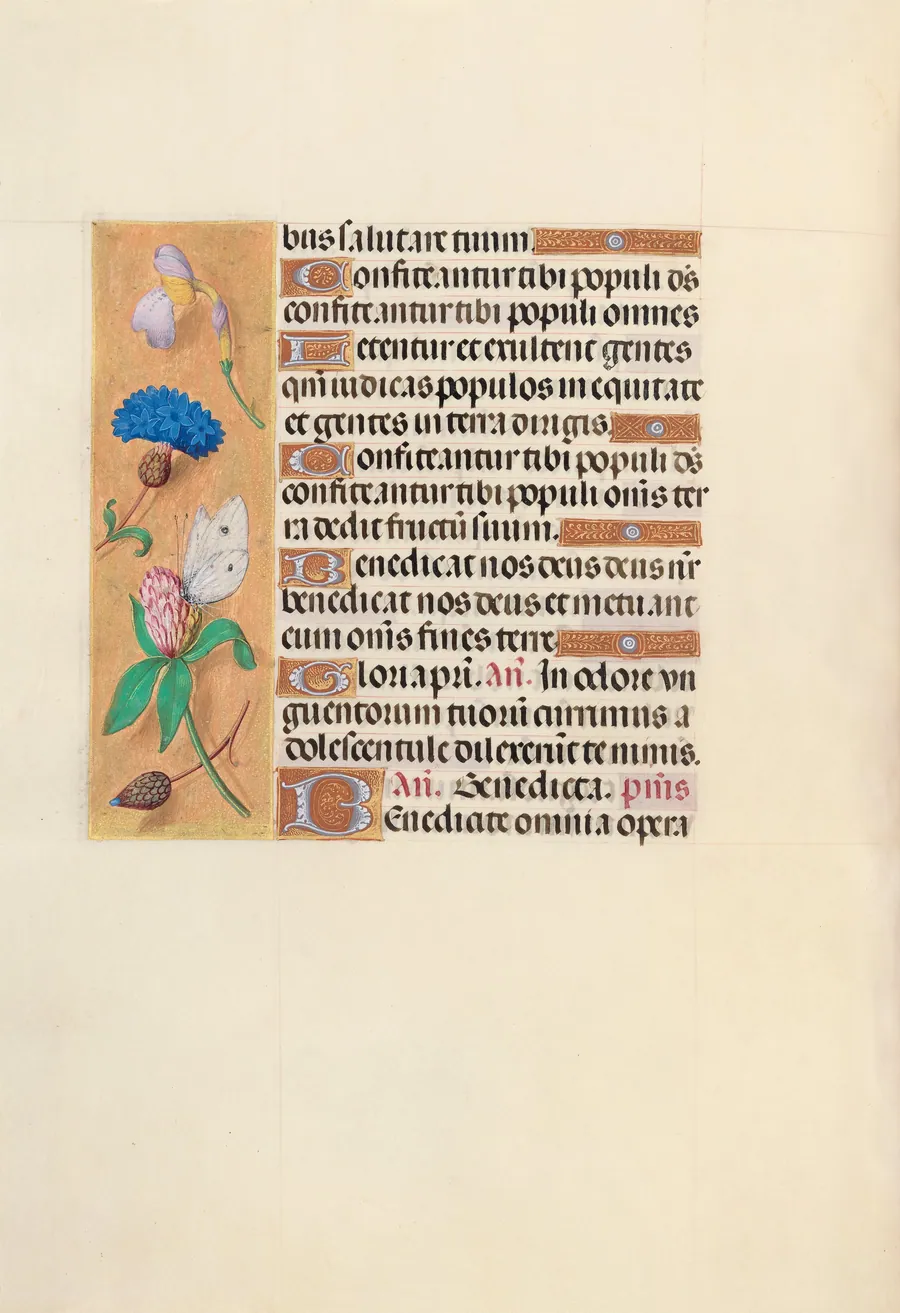 bus salutare tuum.
Confiteantur tibi populi dṡ
confiteantur tibi populi omnes
Letentur et exultent gentes
qm̄ iudicas populos in equitate
et gentes in terra dirigis.
Confiteantur tibi populi ds̄
confiteantur tibi populi om̄s ter
ra dedit fructū suum.
Benedicat nos deus deus nr̄
benedicat nos deus et metuant
eum om̄s fines terre
Gloria pr̄i. An̄. In odore vn
guentorum tuorū currimus a
dolescentule dilexerūt te nimis.
An̄. Benedicta. pm̄s
Benedicite omnia opera